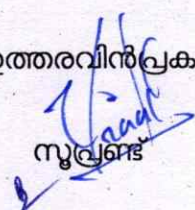 ഉത്തരവിൻപ്രക
സൂപ്രണ്ട്